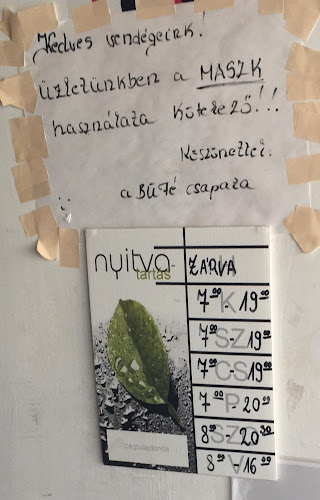 Kedves vendégeink!
üzletünkben a MASZK
használata kötelező!!!
Köszönettel:
a BÜFÉ csapata
:)
nyitva-
tartás
ZÁRVA
7⁰⁰ K - 19⁰⁰
7⁰⁰ SZ - 19⁰⁰
7⁰⁰ CS - 19⁰⁰
7⁰⁰ P - 20⁰⁰
8⁰⁰ SZO - 20³⁰
8⁰⁰ V - 16⁰⁰
cégtulajdonos